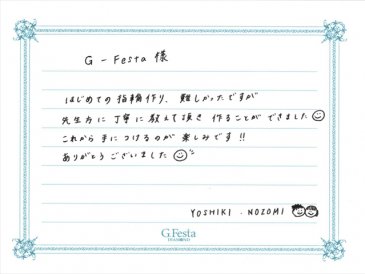 G - Festa 様
はじめての指輪作り、難しかったですが
先生方に丁寧に教えて頂き 作ることができました
これから手につけるのが楽しみです!!
ありがとうございました
YOSHIKI . NOZOMI
G.Festa
DIAMOND